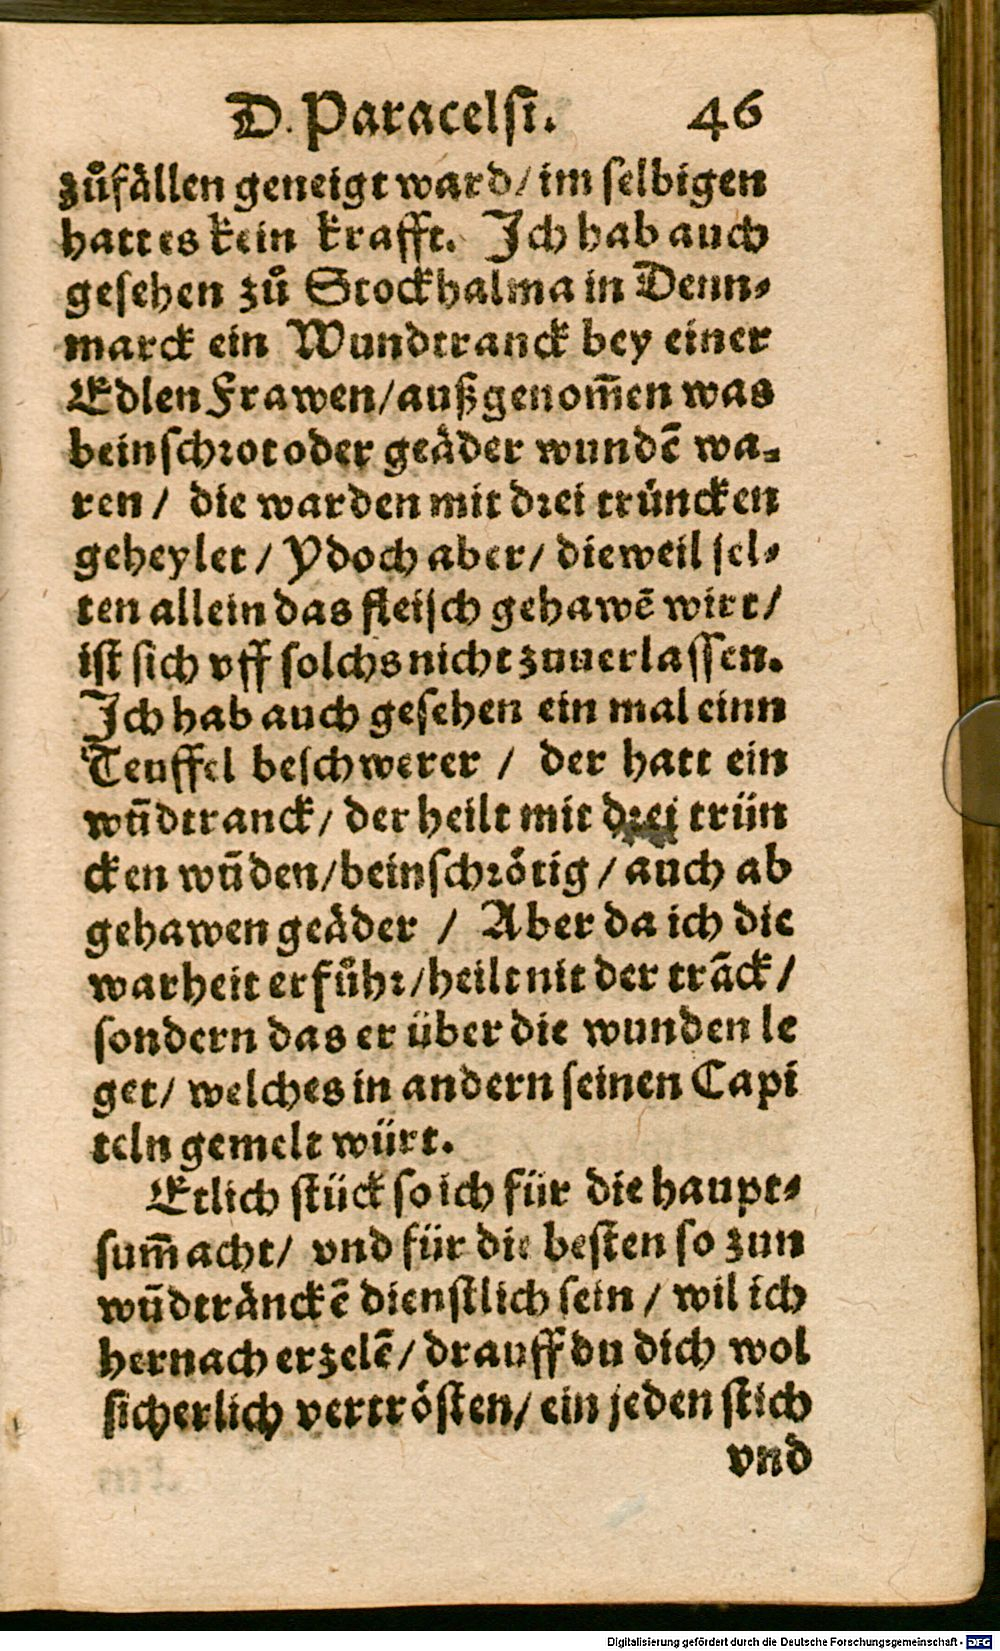 D. Paracelsi. 46
zůfällen geneigt ward/ im selbigen
hatt es kein krafft. Ich hab auch
gesehen zů Stockhalma in Denn-
marck ein Wundtranck bey einer
Edlen Frawen/ außgenom̃en was
beinschrot oder geäder wundẽ wa-
ren/ die warden mit drei trüncken
geheylet/ Ydoch aber/ dieweil sel-
ten allein das fleisch gehawẽ wirt/
ist sich vff solchs nicht zuuerlassen.
Ich hab auch gesehen ein mal einn
Teuffel beschwerer/ der hatt ein
wũdtranck/ der heilt mit drei trün
cken wũden/ beinschrötig/ auch ab
gehawen geäder/ Aber da ich die
warheit erfůhr/ heilt nit der trãck/
sondern das er über die wunden le
get/ welches in andern seinen Capi
teln gemelt würt.
Etlich stück so ich für die haupt-
sum̃ acht/ vnd für die besten so zun
wũdtränckẽ dienstlich sein/ wil ich
hernach erzelẽ/ drauff du dich wol
sicherlich vertrösten/ ein jeden stich
vnd
Digitalisierung gefördert durch die Deutsche Forschungsgemeinschaft - DFG